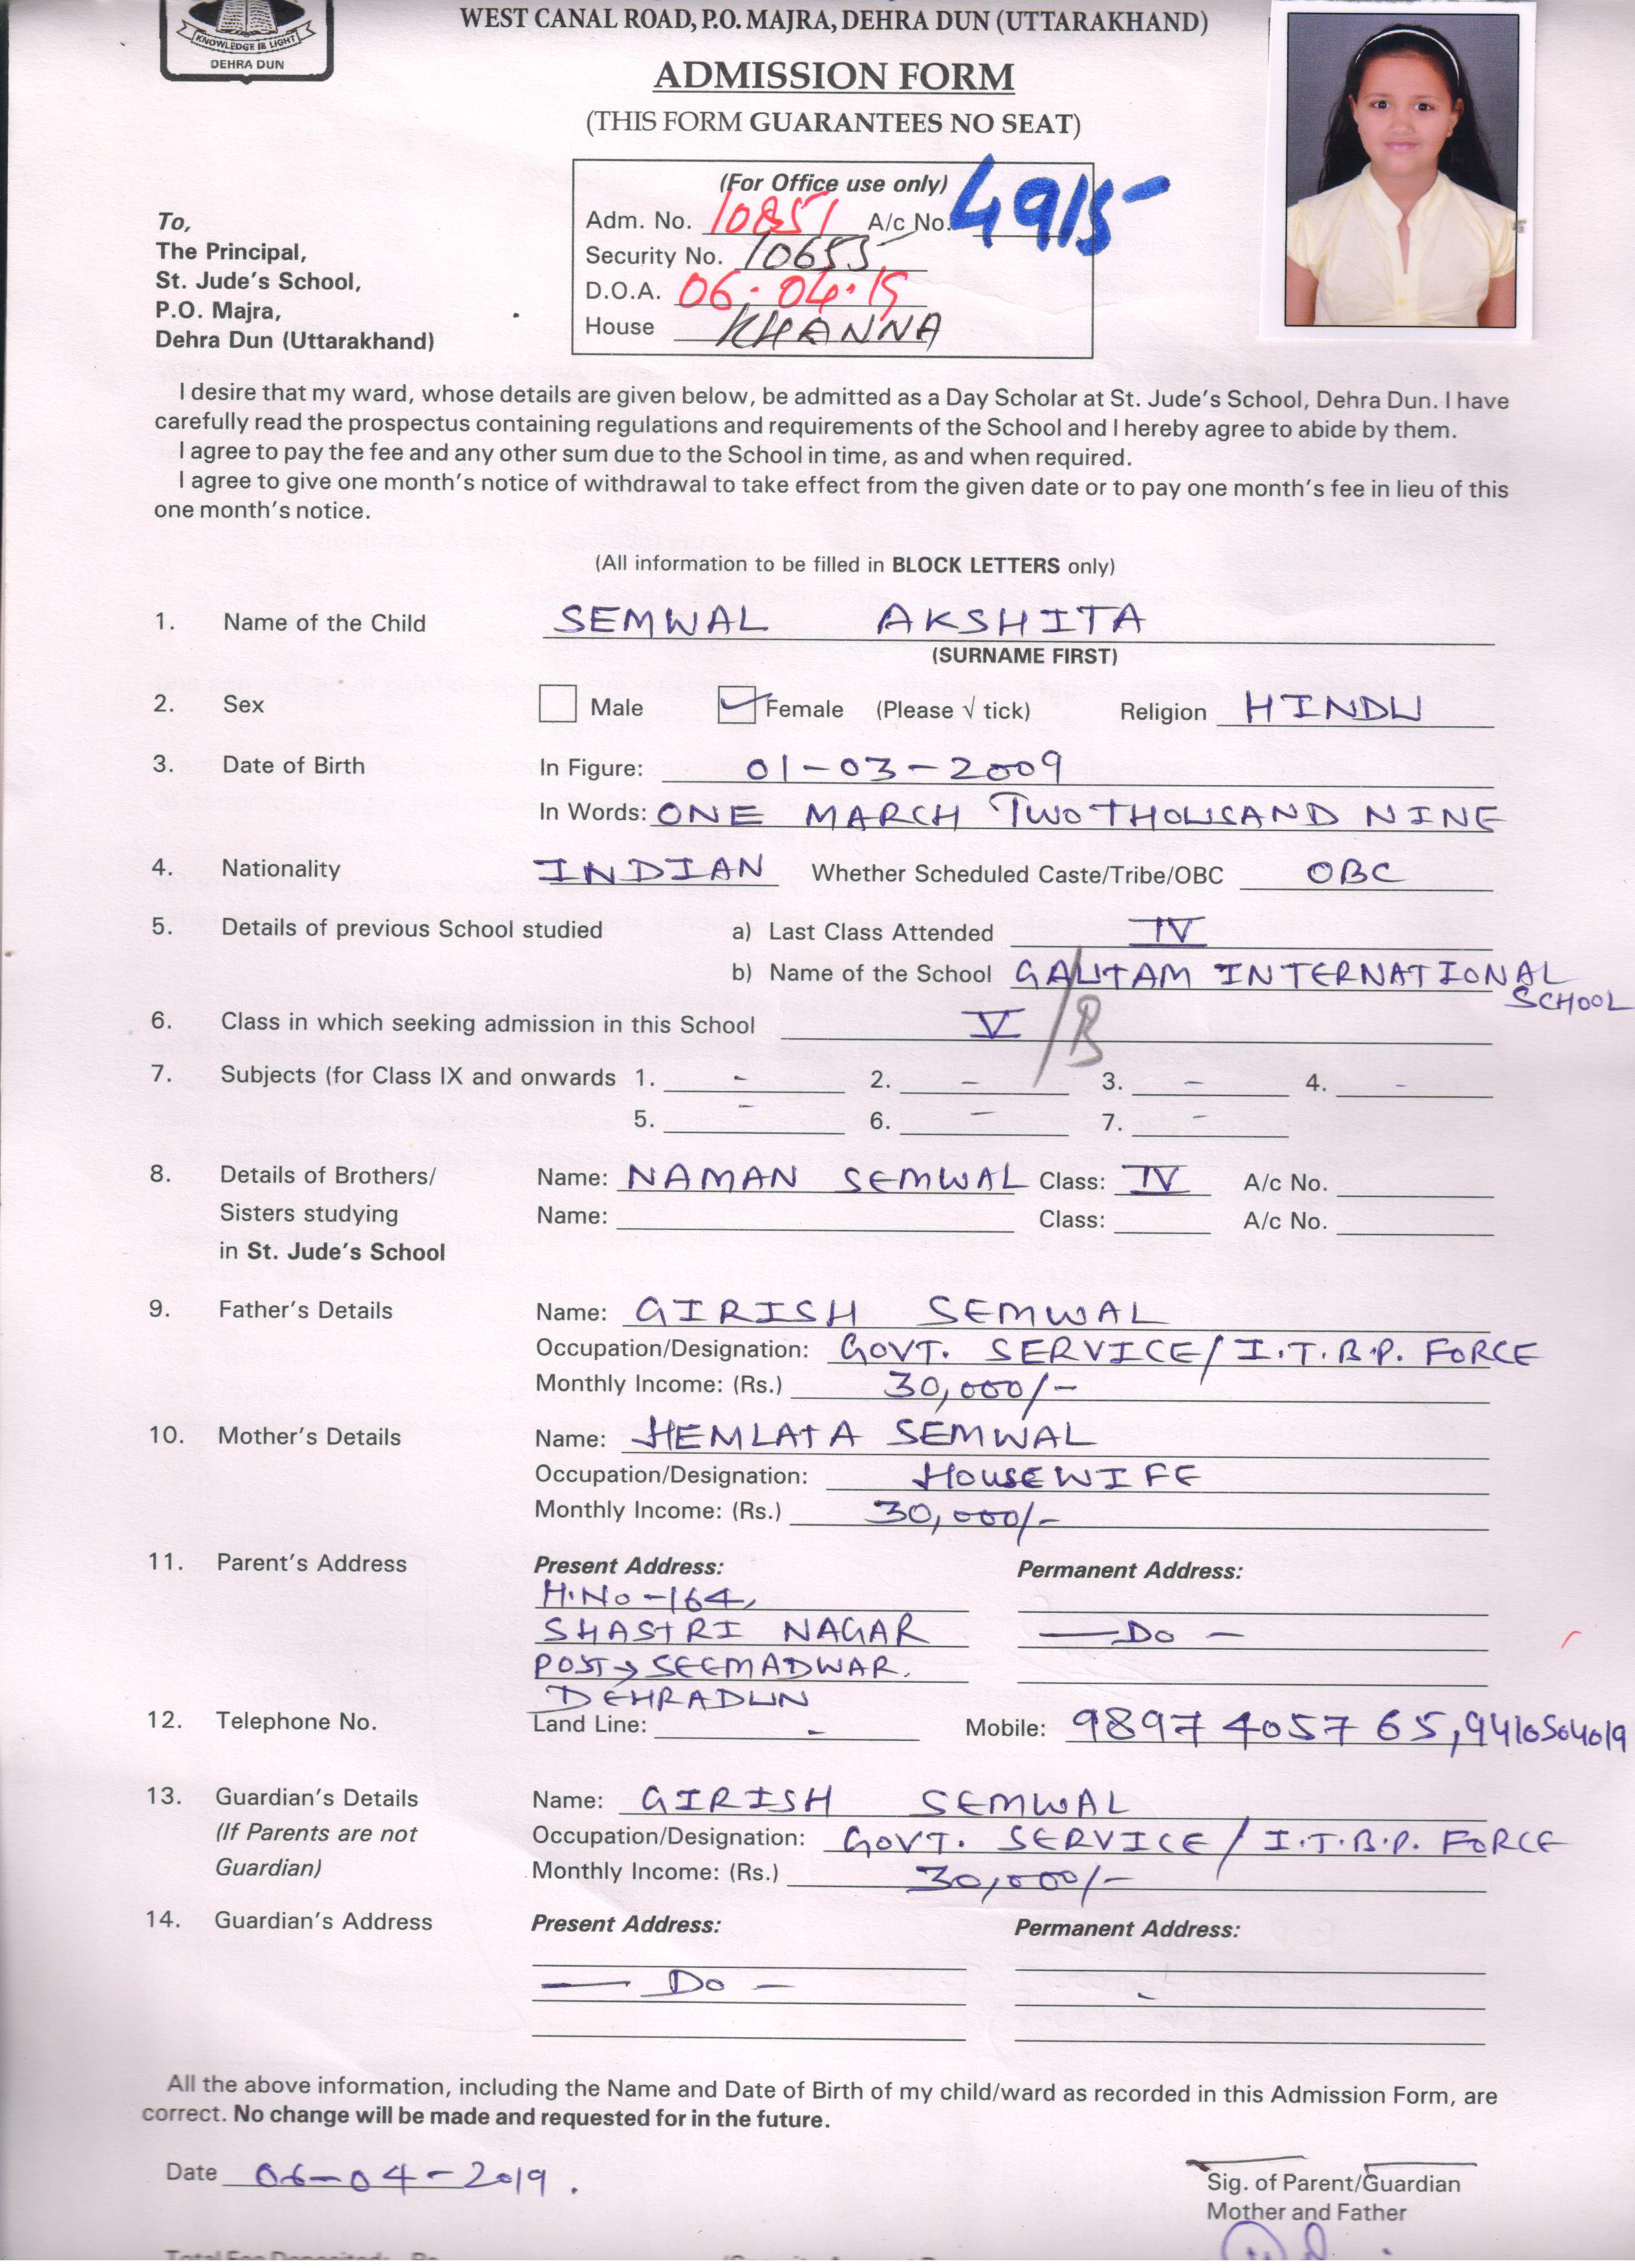 KNOWLEDGE IS LIGHT
DEHRA DUN
WEST CANAL ROAD, P.O. MAJRA, DEHRA DUN (UTTARAKHAND)
ADMISSION FORM
(THIS FORM GUARANTEES NO SEAT)
(For Office use only)
Adm. No. 10851 A/c No. 4915
Security No. 10653
D.O.A. 06.04.19
House KHANNA
To,
The Principal,
St. Jude's School,
P.O. Majra,
Dehra Dun (Uttarakhand)
I desire that my ward, whose details are given below, be admitted as a Day Scholar at St. Jude's School, Dehra Dun. I have
carefully read the prospectus containing regulations and requirements of the School and I hereby agree to abide by them.
I agree to pay the fee and any other sum due to the School in time, as and when required.
I agree to give one month's notice of withdrawal to take effect from the given date or to pay one month's fee in lieu of this
one month's notice.
(All information to be filled in BLOCK LETTERS only)
1. Name of the Child SEMWAL AKSHITA
(SURNAME FIRST)
2. Sex Male Female (Please √ tick) Religion HINDU
3. Date of Birth In Figure: 01-03-2009
In Words: ONE MARCH TWO THOUSAND NINE
4. Nationality INDIAN Whether Scheduled Caste/Tribe/OBC OBC
5. Details of previous School studied a) Last Class Attended IV
b) Name of the School GAUTAM INTERNATIONAL
SCHOOL
6. Class in which seeking admission in this School V/B
7. Subjects (for Class IX and onwards 1. - 2. - 3. - 4. -
5. - 6. - 7. -
8. Details of Brothers/ Name: NAMAN SEMWAL Class: IV A/c No.
Sisters studying Name: Class: A/c No.
in St. Jude's School
9. Father's Details Name: GIRISH SEMWAL
Occupation/Designation: GOVT. SERVICE/I.T.B.P. FORCE
Monthly Income: (Rs.) 30,000/-
10. Mother's Details Name: HEMLATA SEMWAL
Occupation/Designation: HOUSEWIFE
Monthly Income: (Rs.) 30,000/-
11. Parent's Address Present Address: Permanent Address:
H.No-164,
SHASTRI NAGAR — Do —
POST→SEEMADWAR.
DEHRADUN
12. Telephone No. Land Line: - Mobile: 98974057 65, 9410504019
13. Guardian's Details Name: GIRISH SEMWAL
(If Parents are not Occupation/Designation: GOVT. SERVICE / I.T.B.P. FORCE
Guardian) Monthly Income: (Rs.) 30,000/-
14. Guardian's Address Present Address: Permanent Address:
— Do — -
All the above information, including the Name and Date of Birth of my child/ward as recorded in this Admission Form, are
correct. No change will be made and requested for in the future.
Date 06-04-2019.
Sig. of Parent/Guardian
Mother and Father